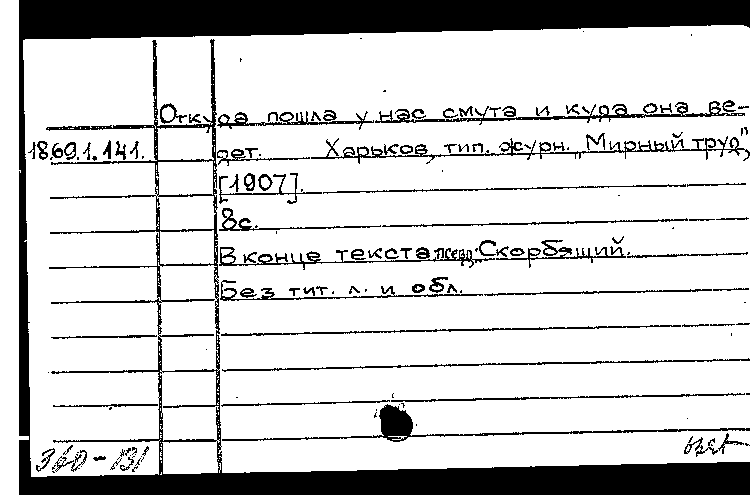 Откуда пошла у нас смута и куда она ве-
18.69.1.141. дет. Харьков, тип. журн. „Мирный труд",
[1907].
8с.
В конце текста псевд.: Скорбящий.
Без тит. л. и обл.
360-131